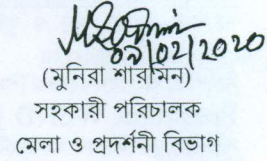 ০৯/02/2020
(মুনিরা শারমিন)
সহকারী পরিচালক
মেলা ও প্রদর্শনী বিভাগ